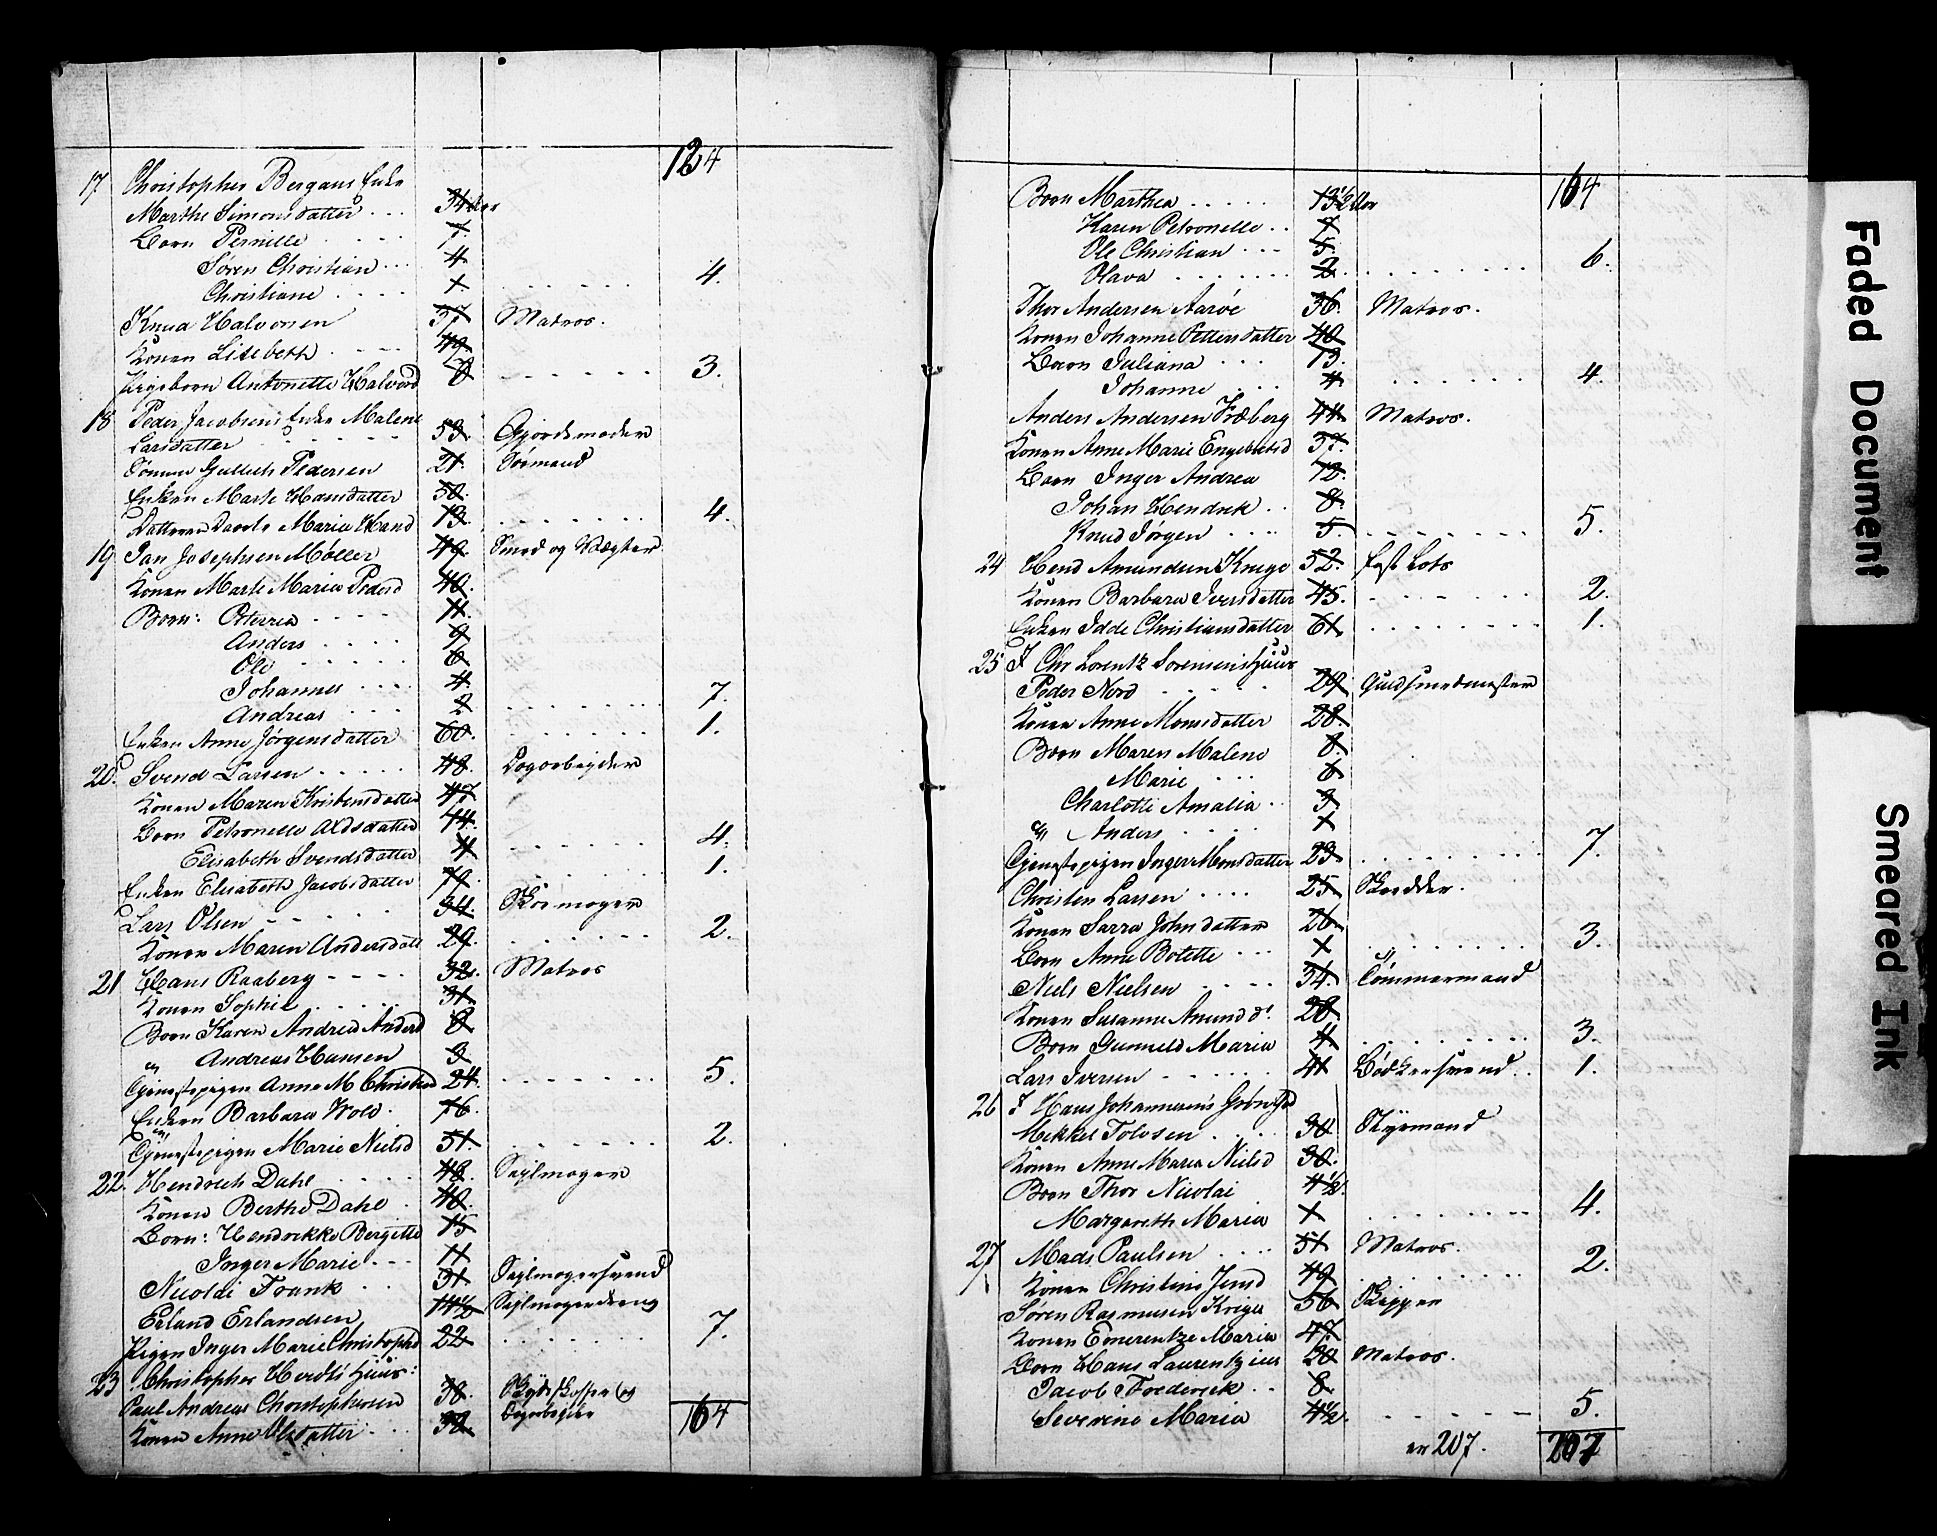 124
17 Christopher Bergans Enke
Marthe Simonsdatter . . . 34 Aar
Børn Pernille . . . . 7.
Søren Christian . . . 4
Christiane . . . . 1. . . . . . . 4.
Knud Halvorsen 37 Matros.
Konen Lisebeth . . . . 49
Pigebarn Antonette Halvord 8 . . . . . . 3.
18 Peder Jacobsens Enke Malene
Larsdatter . . . . . 53. Gjordemoder
Sønnen Gullich Pedersen 21. Sømand
Enken Marte Hansdatter 50.
Datteren Dorte Maria Hansd 13. . . . . . . 4.
19 Jan Josephsen Møller 49. Smed og Vægter
Konen Marte Maria Pedersd 40.
Børn: Oterria . . . . 11.
Anders . . . . 9
Ole . . . . . 6
Johannes . . . . 4.
Andreas . . . 2 . . . . . . . 7.
Enken Anne Jørgensdatter 60. . . . . . . 1.
20. Svend Larsen . . . . . 48. Dagarbejder
Konen Maren Kristensdatter 47
Børn Petronelle Aldsdatter 14.
Elisabeth Svendsdatter 4. . . . . . . 4.
Enken Elisabeth Jacobsdatter 79. . . . . . . 1.
Lars Olsen - - - - - 34. Skoemager
Konen Maren Andersdatt 29. . . . . . . 2.
21 Hans Raaberg - - - - 32. Matros
Konen Sophie . . . . . 31.
Børn Karen Andrea Andersd 8
" Andreas Hansen 3
Tjenestepigen Anne M Christensd 24. . . . . . . 5.
Enken Barbara Wold . 76.
Tjenestepigen Marie Nielsd 51. . . . . . . 2.
22. Hendrich Dahl . . . . . 48. Sejlmager
Konen Berthe Dahl . 40.
Børn: Hendrikke Bergitte 15
Inger Marie . . . 11
Nicolai Frank . . 31. Sejlmagersvend
Erland Erlandsen 14½ Sejlmagerdreng
Pigen Inger Marie Christophd 22 . . . . . . 7.
23 Christopher Herdts Huus:
Paul Andreas Christophersen 38. Skydsskaffer og
Dagarbejder
Konen Anne Olsdatter . . . 32.
164
164
Børn Marthea . . . . . 13½ Aar
Karen Petronelle . . 7
Ole Christian . . . 5.
Olava . . . . . . . 2. . . . . . . . 6.
Thor Andersen Aarøe 36. Matros.
Konen Johanne Pettersdatter 40
Børn Juliana . . . 13.
Johanne . . . 4 . . . . . . 4.
Anders Andersen Fræberg 44. Matros.
Konen Anne Marie Engebretsd 37.
Børn Inger Andrea 12.
Johan Hendrik . . 8.
Knud Jørgen . . . . 5. . . . . . . . 5.
24 Hend Amundsen Kruge 52. fast Lots
Konen Barbara Iversdatter 45. . . . . . . 2.
Enken Idde Christiansdatter 61. . . . . . . . 1.
25 I Chr Lorentz Sørensens Huus
Peder Nord . . . . . 29. Guldsmedmester
Konen Anne Monsdatter 28.
Børn Maren Malene 8.
Marie . . . 6
Charlotte Amalia . . 3
" Anders . . . . 1
Tjenestepigen Inger Monsdatter 23. . . . . . . . 7.
Christen Larsen . . . . 25. Skrædder.
Konen Sarra Johnsdatter 26.
Børn Anne Botette . . . 1 . . . . . . . 3.
Niels Nielsen . . . . 34. Tømmermand
Konen Susanne Amundsd. 28.
Børn Gunneld Maria 4. . . . . . . . 3.
Lars Iversen . . . . . . 41 Bødkersvend . . 1.
26 I Hans Johannesens Huus
Mikkel Tolvsen . . . . 30. Styrmand
Konen Anne Maria Nielsd 30.
Børn Thor Nicolai 4½.
Margareth Maria . 1 . . . . . . . 4.
27 Mads Paulsen . . . . 51 Matros.
Konen Christine Jensd 49. . . . . . . . 2.
Søren Rasmusen Kriger 56. Skipper
Konen Emerentze Maria 47.
Børn Hans Laurentzius 20. Matros.
Jacob Frederick . . 8.
Severine Maria 4½. - - - - - 5.
er 207. 207
Faded Document
Smeared Ink